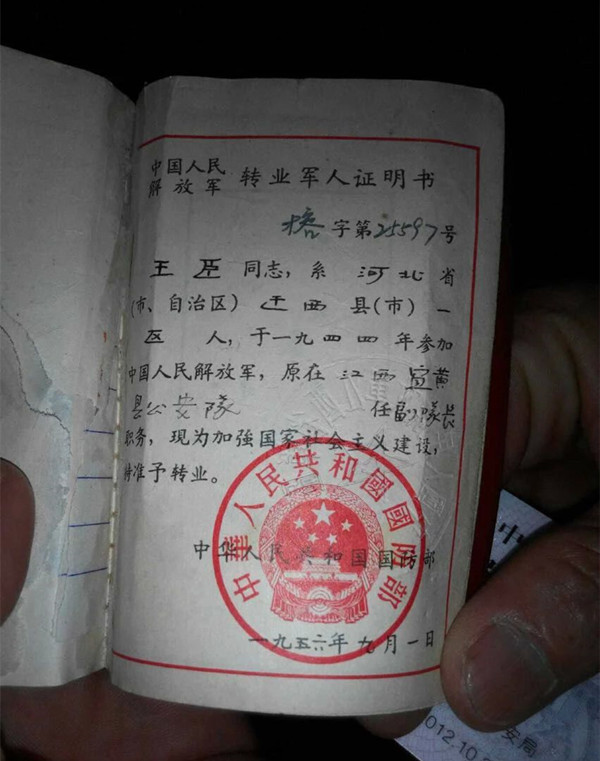 中国人民
解放军 转业军人证明书
字第25597号
王臣同志,系河北省
(市、自治区)迁西县(市)一
区人,于一九四四年参加
中国人民解放军,原在江西宜黄
县公安隊 任副隊长
职务,现为加强国家社会主义建设,
特准予转业。
中华人民共和国国防部
中華人民共和國國防部
一九五六年九月一日
中
安局
012.10